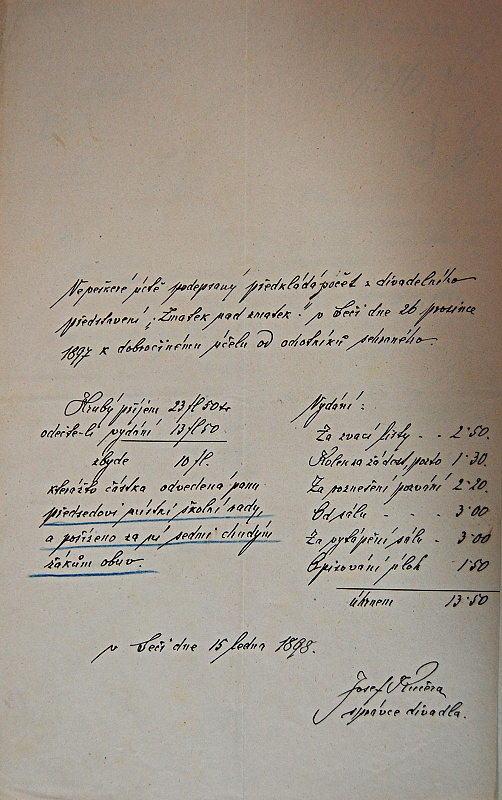 Veškeré úctě podepsaný předkládá počet z divadelního
představení „Zmatek nad zmatek" v Seči dne 26 prosince
1897 k dobročinému účelu od ochotníků sehraného.
Hrubý příjem 23 fl 50 kr
odečte-li vydání 13 fl 50
zbyde 10 fl.
kterážto částka odvedena panu
předsedovi místní školní rady
a pořízeno za ní sedmi chudým
žákům obuv.
Vydání:
Za zvací listy - - 2·50
Kolek za žádost, porto 1·30
Za roznešení pozvání - 2·20
Od sálu - - - 3·00
Za vytápění sálu - 3·00
Opisování úloh - 1·50
úhrnem 13·50
v Seči dne 15 ledna 1898.
Josef Kučera
správce divadla.